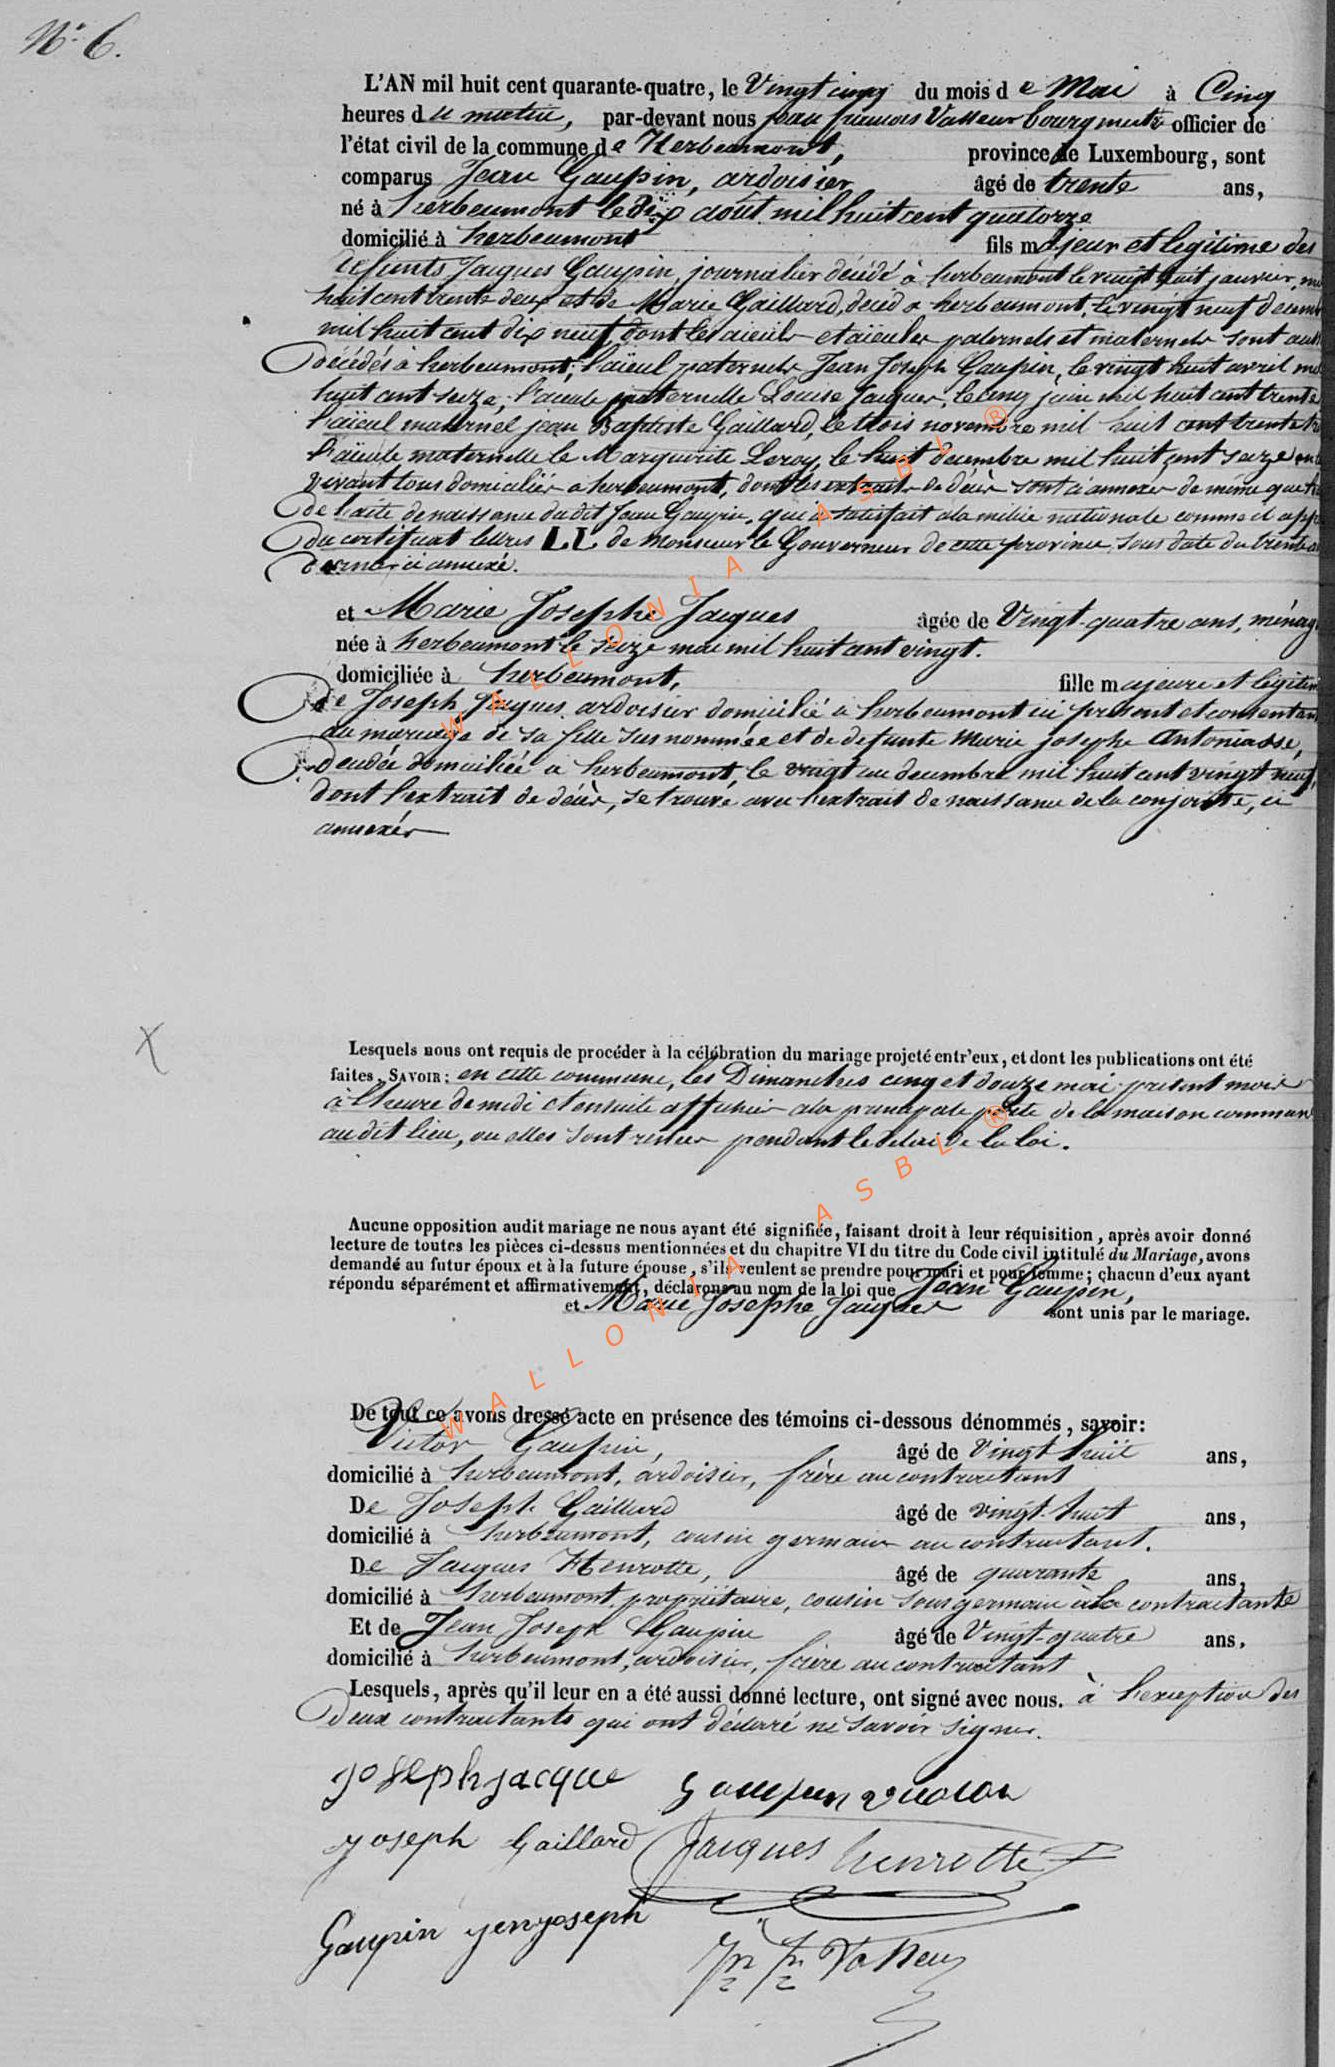 N° 6.
L'AN mil huit cent quarante-quatre, le Vingt cinq du mois de Mai à Cinq
heures du matin, par-devant nous jean francois Vasseur bourgmestre officier de
l'état civil de la commune de Herbeumont, province de Luxembourg, sont
comparus Jean Gaupin, ardoisier âgé de trente ans,
né à herbeumont le dix août mil huit cent quatorze
domicilié à herbeumont fils majeur et légitime des
défunts Jacques Gaupin, journalier décédé à herbeumont le vingt huit janvier, mil
huit cent trente deux et de Marie Gaillard, décéd a herbeumont, le vingt neuf décem
mil huit cent dix neuf, dont les aieuls et aïeules paternels et maternels sont aussi
décédés à herbeumont; l'aïeul paternels Jean Joseph Gaupin, le vingt huit avril mil
huit cent seize, l'aieule paternelle Louise Jacques, le cinq juin mil huit cent trente
l'aïeul maternel jean Baptiste Gaillard, le trois novembre mil huit cent trente
l'aïeule maternelle le Marguerite Leroy, le huit decembre mil huit cent seize en
vivant tous domiciliés a herbeumont, dont les extraits de décès sont ci annexés de même que
de l'acte de naissance du dit Jean Gaupin, qui a satisfait a la milice nationale comme il
du certificat lettres LL de Monsieur le Gouverneur de cette province, sous date du trente
dernier ci annexé.
et Marie Josephe Jacques âgée de Vingt-quatre ans, ménag
née à herbeumont le seize mai mil huit cent vingt.
domiciliée à herbeumont, fille majeure et légitime
de Joseph Jacques ardoisier domicilié à herbeumont ici présent et consentant
au mariage de sa fille susnommée et de defunte Marie josephe Antoniasse,
décédée domiciliée a herbeumont, le vingt un decembre mil huit cent vingt neuf,
dont l'extrait de décès, se trouve avec l'extrait de naissance de la conjointe, ci
annexés
Lesquels nous ont requis de procéder à la célébration du mariage projeté entr'eux, et dont les publications ont été
faites, SAVOIR: en cette commune, les Dimanches cinq et douze mai présent mois
à l'heure de midi et ensuite afficher a la principale porte de la maison commune
au dit lieu, ou elles sont restées pendant le délai de la loi.
Aucune opposition audit mariage ne nous ayant été signifiée, faisant droit à leur réquisition, après avoir donné
lecture de toutes les pièces ci-dessus mentionnées et du chapitre VI du titre du Code civil intitulé du Mariage, avons
demandé au futur époux et à la future épouse, s'ils veulent se prendre pour mari et pour femme; chacun d'eux ayant
répondu séparément et affirmativement, déclarons au nom de la loi que Jean Gaupin,
et Marie Josephe Jacques sont unis par le mariage.
De tout ce avons dressé acte en présence des témoins ci-dessous dénommés, savoir:
Victor Gaupin, âgé de Vingt huit ans,
domicilié à herbeumont, ardoisier, frère au contractant
De Joseph Gaillard âgé de vingt-huit ans,
domicilié à herbeumont, cousin germain au contractant.
De Jacques Henrotte, âgé de quarante ans,
domicilié à herbeumont, propriétaire, cousin sous germain à la contractante
Et de Jean Joseph Gaupin âgé de Vingt-quatre ans,
domicilié à herbeumont, ardoisier, frère au contractant
Lesquels, après qu'il leur en a été aussi donné lecture, ont signé avec nous. à l'exception des
deux contractants qui ont déclaré ne savoir signer.
joseph jacque Gaupin victor
joseph Gaillard Jacques henrotte
Gaupin jenjoseph
Jn fr Vasseur
WALLONIA ASBL ®
WALLONIA ASBL ®